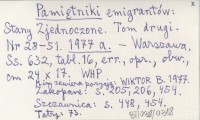 x
Pamiętniki emigrantów:
Stany Zjednoczone. Tom drugi.
Nr 28-51. 1977 a. - Warszawa.
Ss. 632, tabl. 16, err., opr., obw.,
cm 24 x 17. WHP
WIKTOR B. 1977.
Zakopane: s. 205, 206, 454.
Szczawnica: s. 448, 454.
Tatry: 73.